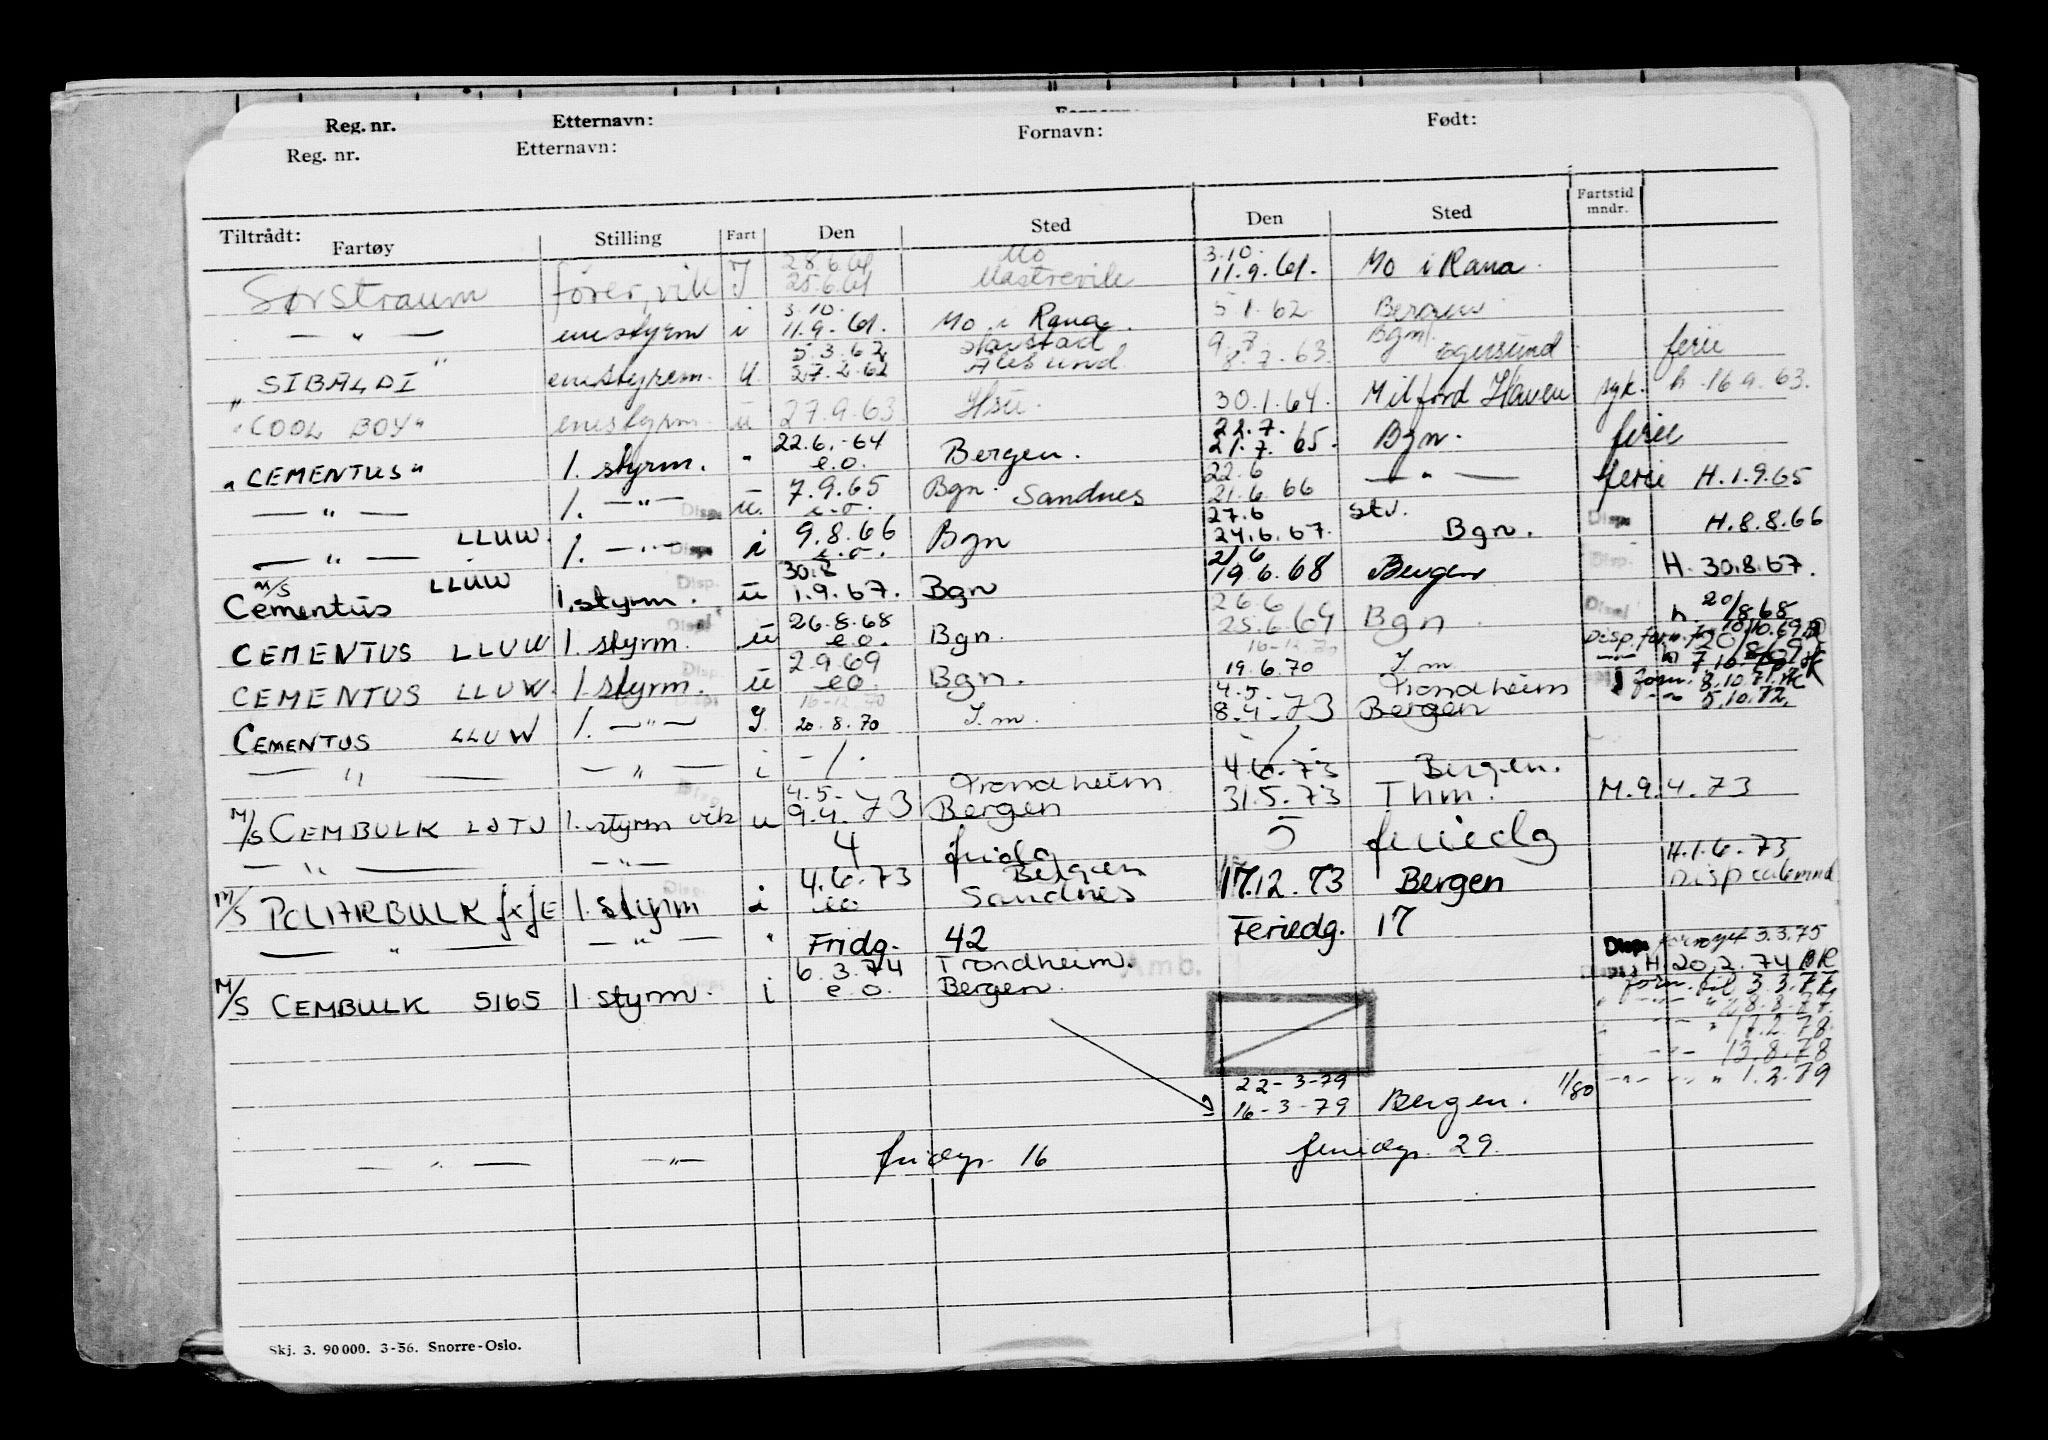 Reg. nr. Etternavn: Fornavn: Født:
Reg. nr. Etternavn:
Tiltrådt: Fartøy Stilling Fart Den Sted Den Sted Fartstid mndr.
28.6.61 Mo 3.10.
Sørstraum fører, vik I 25.6.61 11.9.61. Mo i Rana
3.10. 5 1.62 Bergen
— " — enestyrm i 11.9.61. Mo i Rana.
5.3.62 9.7 Bgn
"SIBALDI" enestyrm. U. 27.2.62 Ålesund 8.7.63. Egersund ferie
"COOL BOY" enestyrm. u 27.9.63 30.1.64. Milford Haven syk. h. 16.9.63.
22.6.-64 22.7.
"CEMENTUS" 1. styrm. " e.o. Bergen. 21.7.65. Bgn. ferie
7.9.65 22.6
— " — 1. — " — Disp. u. e.o. Bgn. Sandnes 21.6 66 — " — ferie H.1.9.65
9.8.66 27.6 Stv.
— " — LLUW. 1. — " — Disp i e.o. Bgn 24.6.67. Bgn. Disp H.8.8.66
30.8 21/6
M/S Cementus LLUW 1. styrm. Disp. u 1.9.67. Bgn 19.6.68 Bergen Disp. H. 30.8.67.
26.8.68 26.6
CEMENTUS LLUW 1. styrm. Disp u e.o. Bgn. 25.6 69 Bgn Disp h 20/8.68
2.9.69 16-12.70
CEMENTUS LLUW. 1. styrm. Disp. u eo. Bgn. 19.6.70 I.m.
16-12.70 4.5. Trondheim
CEMENTUS LLUW 1. — " — I 20.8.70 I.m. 8.4.73 Bergen forn. 8.10.71.
— " — 5.10.72.
— " — — " — i -/. /
4.5. Trondheim 4.6.73 Bergen.
M/S CEMBULK LDTJ 1. styrm vik u 9.4.73 Bergen 31.5.73 Thm. M.9.4.73
— " — — " — 4 fridg 5 feriedg
4.6.73 Bergen H.1.6.73
M/S POLARBULK 1. styrm i eo Sandnes 17.12.73 Bergen
— " — — " — " Fridg. 42 Feriedg. 17
6.3.74 Trondheim. Amb. Disp. fornyet 3.3.75
M/S CEMBULK 5165 1 styrm. i e.o. Bergen. H.20.2.74 BR
forn. til 3.3.77
" — " — " 8.8.77.
" — " — " 17.2.78.
— " — 13.8.78
22-3-79 — " — " — " 1.2.79
16-3-79 Bergen. 1/80
— " — — " — fridgr. 16 feriedgr. 29.
Skj. 3. 90 000. 3-56. Snorre-Oslo.